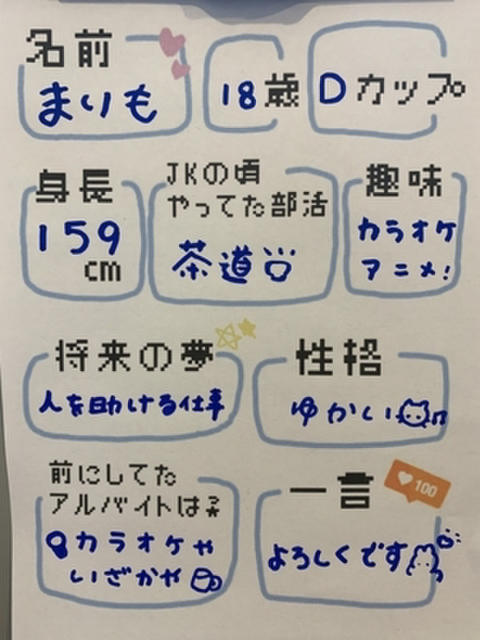 名前
まりも
18歳
Dカップ
身長
159
cm
JKの頃
やってた部活
茶道
趣味
カラオケ
アニメ!
将来の夢
人を助ける仕事
性格
ゆかい
前にしてた
アルバイトは?
カラオケや
いざかや
一言
100
よろしくです